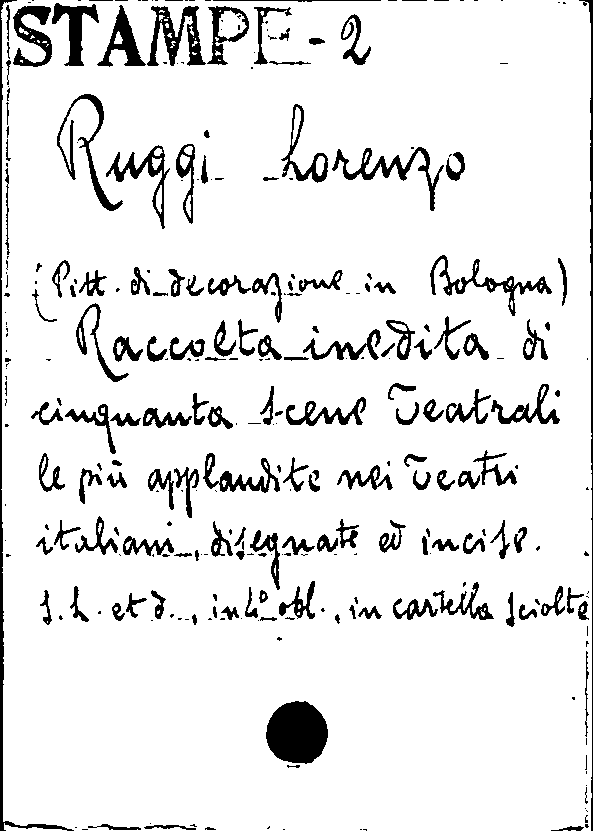 STAMPE - 2
Ruggi Lorenzo
(Pitt. di decorazione in Bologna)
Raccolta inedita di
cinquanta scene Teatrali
le più applaudite nei Teatri
italiani, disegnate ed incise.
s.l. et d., in 4° obl., in cartella sciolte